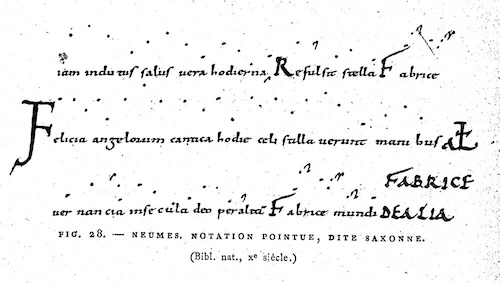 iam indutus salus vera hodierna Refulsit stella Fabrice
Felicia angelorum cantica hodie celi stilla verunt manu bus
FABRICE
ver nan cia inse cula deo peralta Fabrice mundi DE ALIA
FIG. 28. — NEUMES. NOTATION POINTUE, DITE SAXONNE.
(Bibl. nat., xe siècle.)